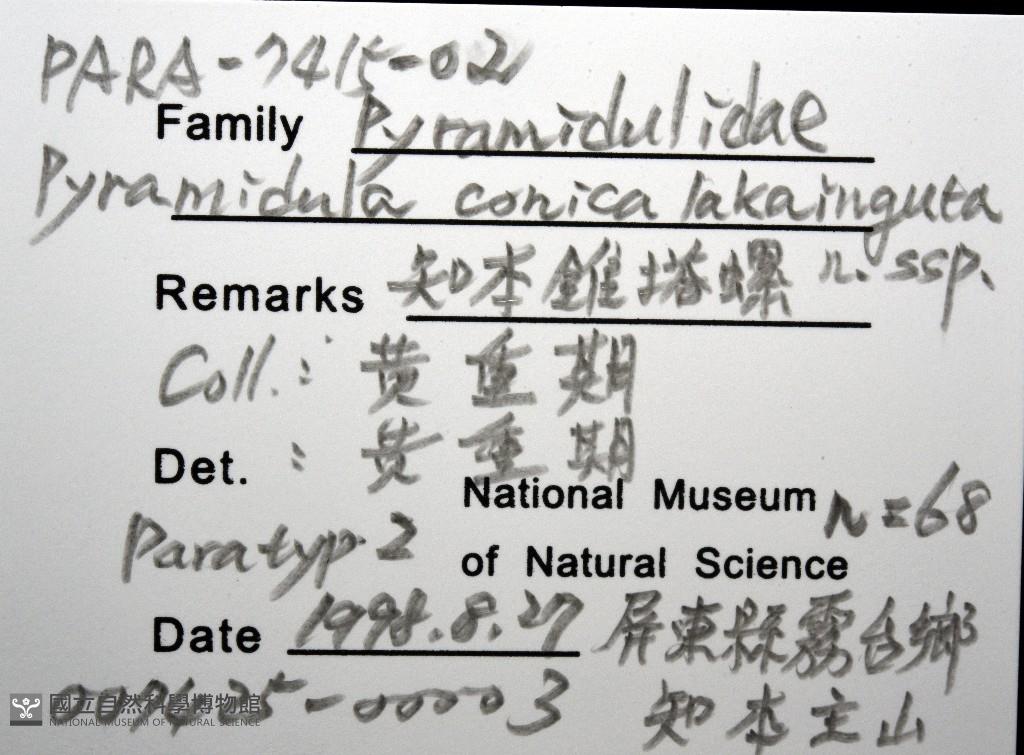 PARA-7415-02
Family Pyramidulidae
Pyramidula conica lakainguta
n. ssp.
Remarks 知本錐塔螺
Coll.: 黄重期
Det. : 黄重期
National Museum n=68
Paratyp. 2 of Natural Science
Date 1998.8.27 屏東縣霧台鄉
-00003 知本主山
國立自然科學博物館
NATIONAL MUSEUM OF NATURAL SCIENCE